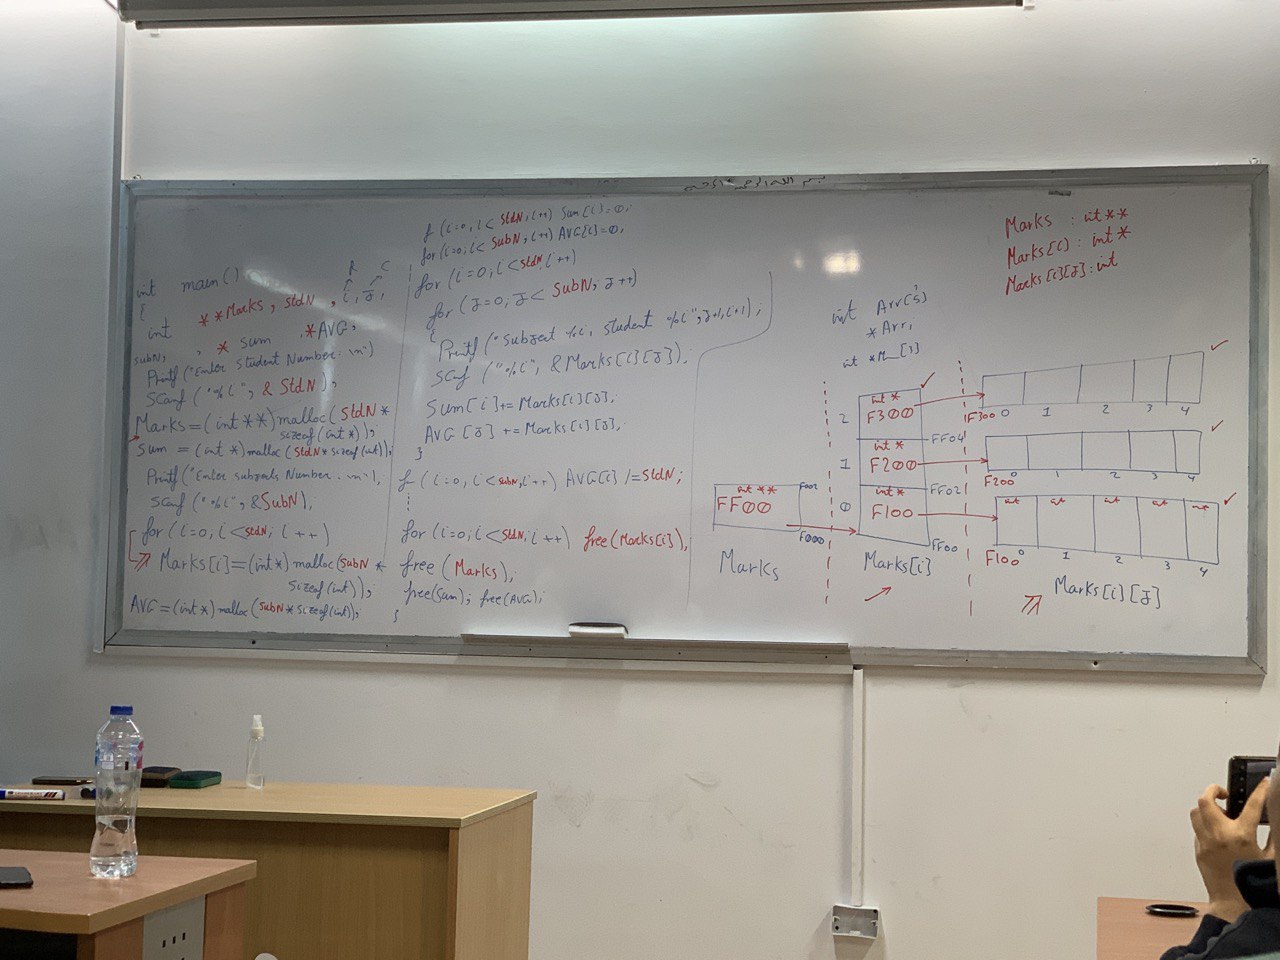 بسم الله الرحمن الرحيم
int main()
R C
{
int **Marks, StdN, i, J,
subN, , * sum , *AVG;
Printf("Enter Student Number: \n")
Scanf("%i", & StdN);
Marks=(int**)malloc(StdN*
sizeof(int*));
Sum = (int*)malloc(StdN*sizeof(int));
Printf("Enter subjects Number: \n"),
Scanf("%i", &SubN),
for(i=0,i<StdN, i++)
Marks[i]=(int*)malloc(SubN*
Sizeof(int));
AVG=(int*)malloc(SubN*sizeof(int));
f(i=0,i<StdN,i++) Sum[i]=0;
for(i=0;i<SubN,i++)AVG[i]=0,
for(i=0;i<StdN, i++)
for(J=0;J<SubN, J++)
{
Printf("Subject %i, student %i",J+1,i+1),
Scanf("%i", &Marks[i][J]),
Sum[i]+=Marks[i][J],
AVG[J] +=Marks[i][J],
}
f(i=0,i<SubN,i++) AVG[i]/=StdN;
for(i=0;i<StdN,i++) free(Marks[i]),
free(Marks);
free(Sum); free(AVG);
}
Marks : int**
Marks[i] : int*
Marks[i][J]:int
int Arr[5]
*Arr,
int *M_[3]
int **
FF00
F002
F000
Marks
2
int *
F300
FF04
1
int *
F200
FF02
0
int *
F100
FF00
Marks[i]
F300 0 1 2 3 4
F200 0 1 2 3 4
int int int int int
F100 0 1 2 3 4
Marks[i][J]